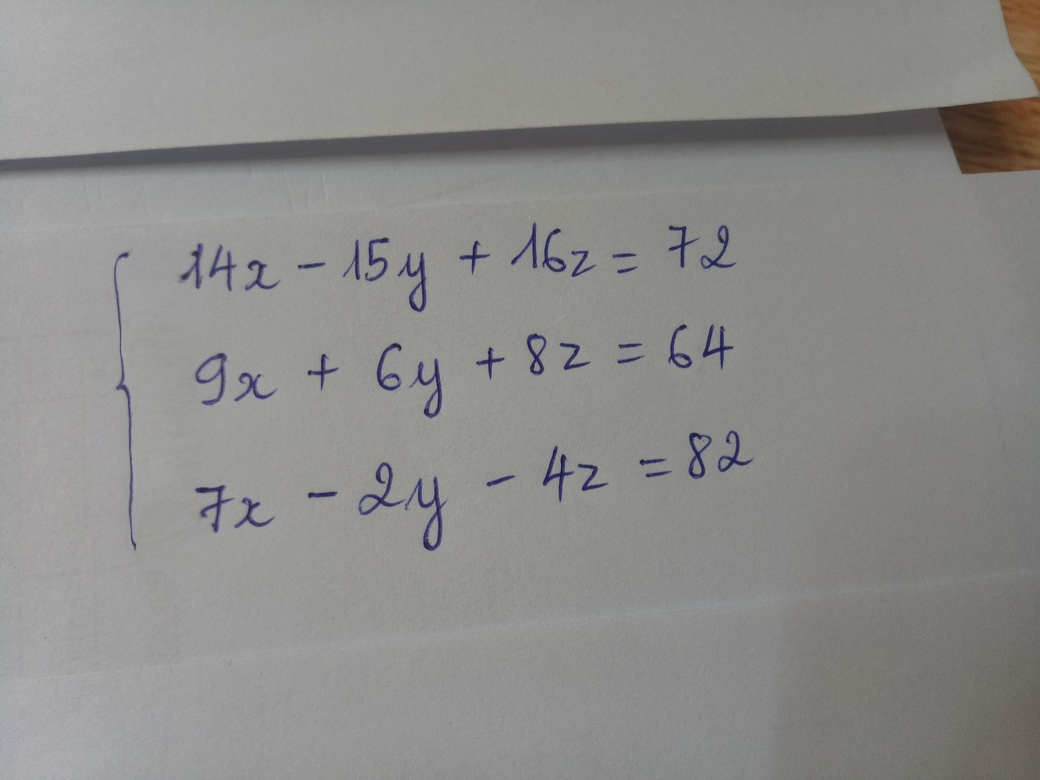 14x - 15y + 16z = 72
9x + 6y + 8z = 64
7x - 2y - 4z = 82